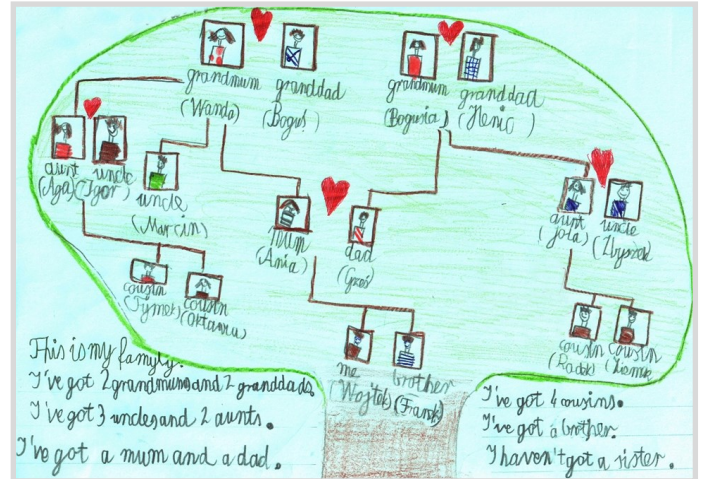 grandmum granddad
(Wanda) (Boguś)
grandmum granddad
(Bogusia) (Henio)
aunt uncle
(Aga) (Igor)
uncle
(Marcin)
mum
(Ania)
dad
(Grześ)
aunt uncle
(Jola) (Zbyszek)
cousin
(Tymek)
cousin
me
(Wojtek)
brother
(Frank)
cousin cousin
(Radek)
This is my family.
I've got 2 grandmums and 2 granddads.
I've got 3 uncles and 2 aunts.
I've got a mum and a dad.
I've got 4 cousins.
I've got a brother.
I haven't got a sister.